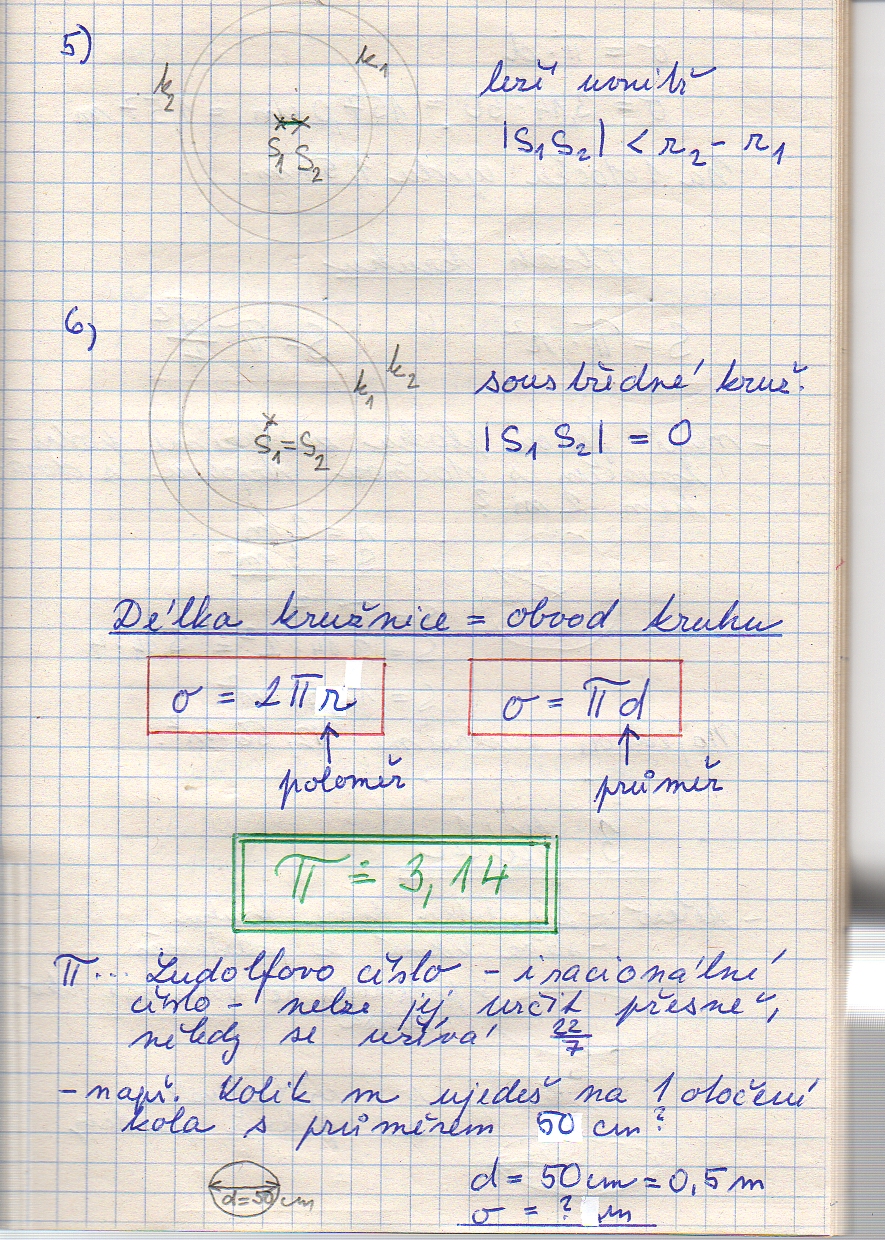 5)
k₂
k₁
S₁ S₂
leží uvnitř
|S₁S₂| < r₂ - r₁
6,)
k₁ k₂
S₁=S₂
soustředné kruž.
|S₁ S₂| = 0
Délka kružnice = obvod kruhu
o = 2πr
o = πd
poloměr
průměr
π ≐ 3,14
π... Ludolfovo číslo - iracionální
číslo - nelze jej určit přesně,
někdy se užívá 22/7
- např. Kolik m ujedeš na 1 otočení
kola s průměrem 50 cm?
d=50cm
d = 50cm = 0,5 m
o = ? m